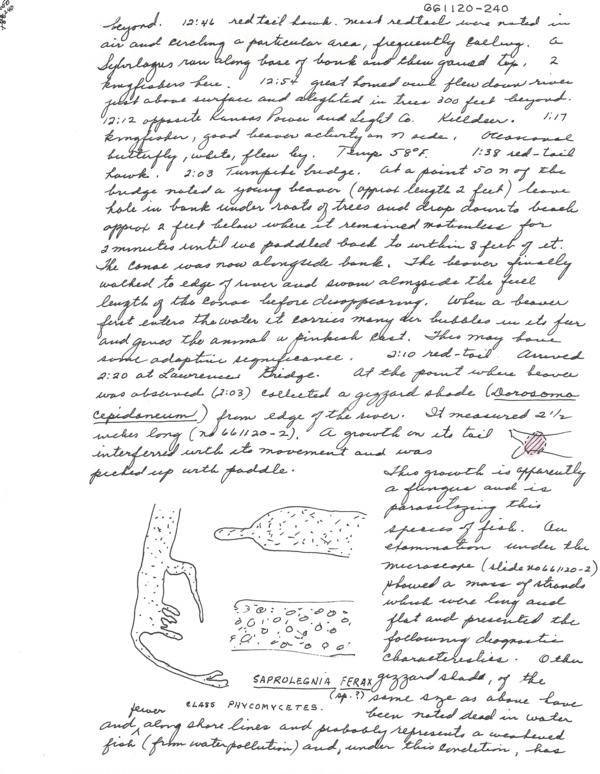 661120-240
beyond. 12:46 red tail hawk. most redtail were noted in
air and circling a particular area, frequently calling. A
Sylvilagus ran along base of bank and then gained top. 2
kingfishers here. 12:54 great horned owl flew down river
just above surface and alighted in trees 300 feet beyond.
12:12 opposite Kansas Power and Light Co. Killdeer. 1:17
kingfisher, good beaver activity on N side. Occasional
butterfly, white, flew by. Temp 58°F. 1:38 red-tail
hawk. 2:03 Turnpike bridge. At a point 50 N of the
bridge noted a young beaver (approx length 2 feet) leave
hole in bank under roots of trees and drop down to beach
approx 2 feet below where it remained motionless for
2 minutes until we paddled back to within 8 feet of it.
The canoe was now alongside bank. The beaver finally
walked to edge of river and swam alongside the full
length of the canoe before disappearing. When a beaver
first enters the water it carries many air bubbles in its fur
and gives the animal a pinkish cast. This may have
some adaptive significance. 2:10 red-tail Arrived
2:20 at Lawrence Bridge. At the point where beaver
was observed (2:03) collected a gizzard shade (Dorosoma
cepidaneum) from edge of the river. It measured 2 1/2
inches long (no 661120-2). A growth on its tail
interferred with its movement and was
picked up with paddle.
This growth is apparently
a fungus and is
parasitizing this
species of fish. An
examination under the
microscope (slide no 661120-2)
showed a mass of strands
which were long and
flat and presented the
following diagnostic
characteristics. Other
SAPROLEGNIA FERAX
(sp.?)
CLASS PHYCOMYCETES.
gizzard shade, of the
same size as above have
been noted dead in water
fewer
and along shore lines and probably represent a weakened
fish (from water pollution) and, under this condition, has